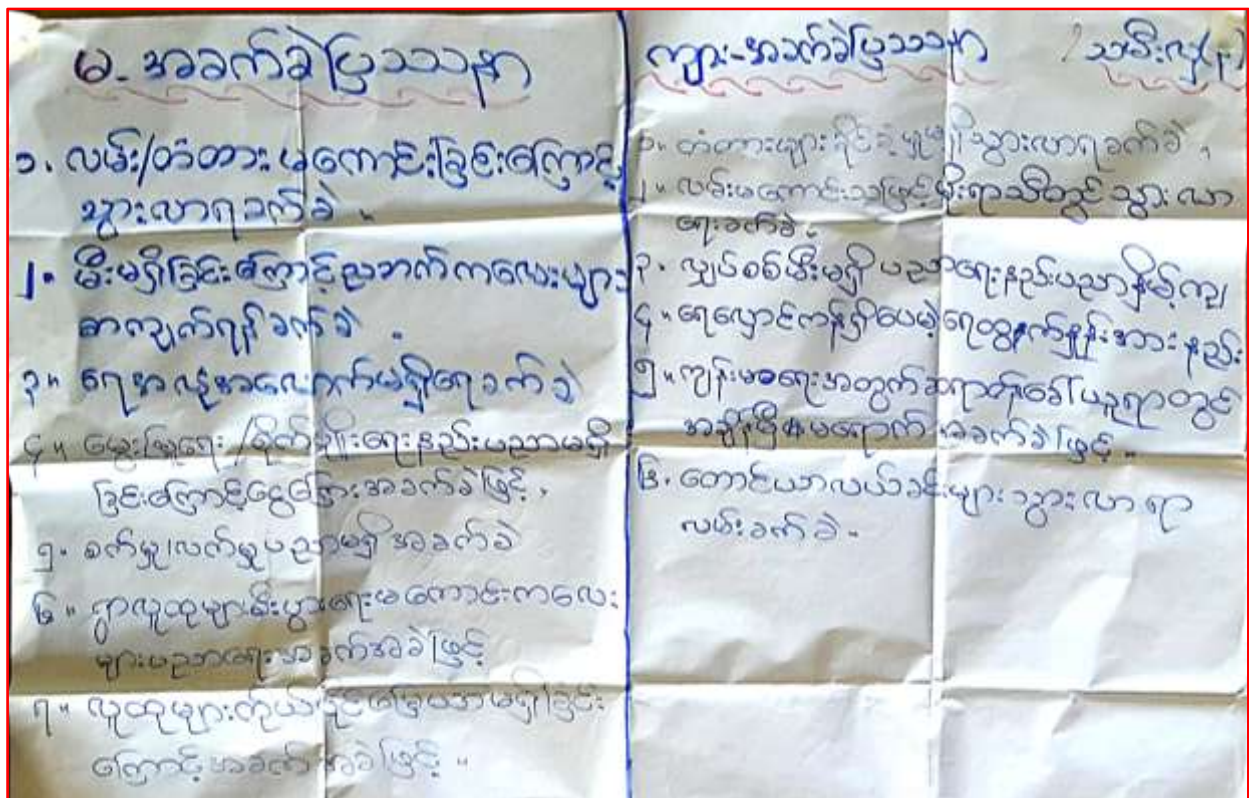 မ-အခက်ခဲပြဿနာ
၁. လမ်း/တံတား မကောင်းခြင်းကြောင့်
သွားလာရခက်ခဲ ။
၂။ မီးမရှိခြင်းကြောင့်ညဘက်ကလေးများ
စာကျက်ရန်ခက်ခဲ .
၃။ ရေအလုံအလောက်မရှိရေခက်ခဲ
၄။ မွေးမြူရေး/စိုက်ပျိုးရေးနည်းပညာမရှိ
ခြင်းကြောင့်ငွေကြေးအခက်ခဲဖြင့် .
၅. စက်မှု၊လက်မှုပညာမရှိအခက်ခဲ
၆။ ရွာလူထုများစီးပွားရေးမကောင်းကလေး
များပညာရေးအခက်အခဲဖြင့်
၇။ လူထုများကိုယ်ပိုင်မြေယာမရှိခြင်း
ကြောင့်အခက်အခဲဖြင့် ။
ကျား-အခက်ခဲပြဿနာ / သမီးလှ(န)
၁. တံတားများခိုင်ခံ့မှုမရှိသွားလာရခက်ခဲ .
၂။ လမ်းမကောင်းသဖြင့်မိုးရာသီတွင် သွားလာ
ရေးခက်ခဲ .
၃. လျှပ်စစ်မီးမရှိ ပညာရေးနည်းပညာနိမ့်ကျ
၄။ ရေလှောင်ကန်ရှိပေမဲ့ရေထွက်နှုန်းအားနည်း
၅။ ကျန်းမာရေးအတွက်ဆရာတ်ခေါ်ယူရာတွင်
အချိန်မှီမရောက် အခက်ခဲဖြင့် ။
၆. တောင်ယာလယ်ခင်းများ သွားလာရာ
လမ်းခက်ခဲ .